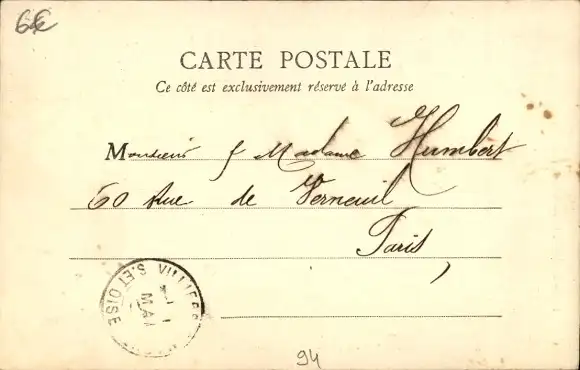 6€
CARTE POSTALE
Ce côté est exclusivement réservé à l'adresse
Monsieur & Madame Humbert
60 Rue de Verneuil
Paris
VILLIERS
S. ET OISE
MAI
94